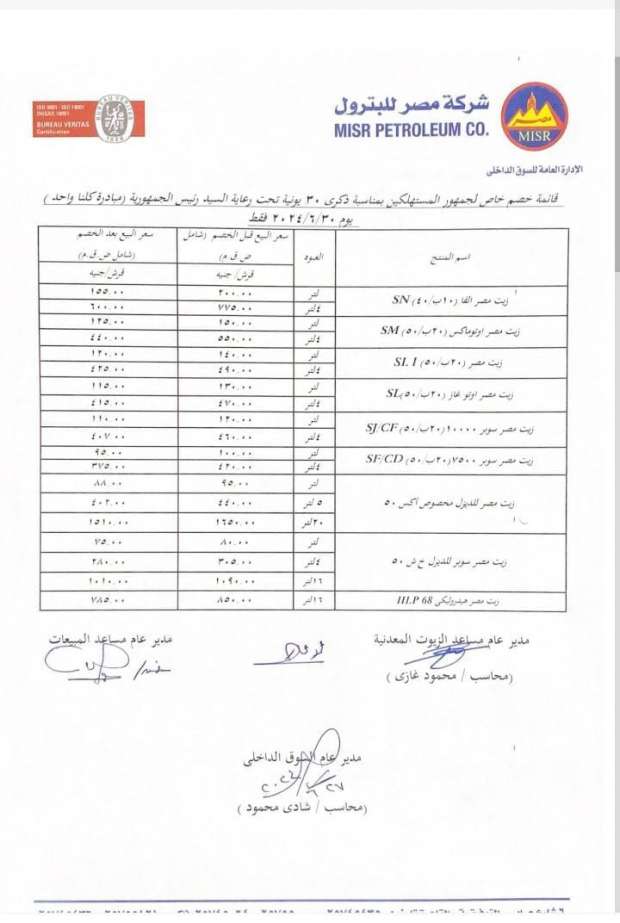 ISO 9001 - ISO 14001
OHSAS 18001
BUREAU VERITAS
Certification
BUREAU VERITAS
1828
شركة مصر للبترول
MISR PETROLEUM CO.
MISR
الإدارة العامة للسوق الداخلى
قائمة خصم خاص لجمهور المستهلكين بمناسبة ذكرى ٣٠ يونية تحت رعاية السيد رئيس الجمهورية (مبادرة كلنا واحد )
يوم ٢٠٢٤/٦/٣٠ فقط
اسم المنتج العبوة سعر البيع قبل الخصم (شامل ض.ق.م) قرش/ جنيه سعر البيع بعد الخصم (شامل ض.ق.م) قرش/جنيه
زيت مصر الفا (١٠ب/٤٠) SN لتر ٢٠٠.٠٠ ١٥٥.٠٠
٤لتر ٧٧٥.٠٠ ٦٠٠.٠٠
زيت مصر اوتوماكس (٢٠ب/٥٠) SM لتر ١٥٠.٠٠ ١٢٥.٠٠
٤لتر ٥٥٠.٠٠ ٤٤٠.٠٠
زيت مصر (٢٠ب/٥٠) SL I لتر ١٤٠.٠٠ ١٢٠.٠٠
٤لتر ٤٩٠.٠٠ ٤٢٥.٠٠
زيت مصر اوتو غاز (٢٠ب/٥٠)SL لتر ١٣٠.٠٠ ١١٥.٠٠
٤لتر ٤٧٠.٠٠ ٤١٥.٠٠
زيت مصر سوبر ١٠٠٠٠(٢٠ب/٥٠) SJ/CF لتر ١٢٠.٠٠ ١١٠.٠٠
٤لتر ٤٦٠.٠٠ ٤٠٧.٠٠
زيت مصر سوبر ٧٥٠٠(٢٠ب/٥٠) SF/CD لتر ١٠٠.٠٠ ٩٥.٠٠
٤لتر ٤٢٠.٠٠ ٣٧٥.٠٠
زيت مصر للديزل مخصوص اكس ٥٠ لتر ٩٥.٠٠ ٨٨.٠٠
٥ لتر ٤٤٠.٠٠ ٤٠٢.٠٠
٢٠لتر ١٦٥٠.٠٠ ١٥١٠.٠٠
زيت مصر سوبر للديزل ح ش ٥٠ لتر ٨٠.٠٠ ٧٥.٠٠
٤لتر ٣٠٥.٠٠ ٢٨٠.٠٠
١٦لتر ١٠٩٠.٠٠ ١٠١٠.٠٠
زيت مصر هيدروليكى HLP 68 ١٦لتر ٨٥٠.٠٠ ٧٨٥.٠٠
مدير عام مساعد الزيوت المعدنية
(محاسب / محمود غازى )
مدير عام مساعد المبيعات
مدير عام السوق الداخلى
(محاسب / شادى محمود )